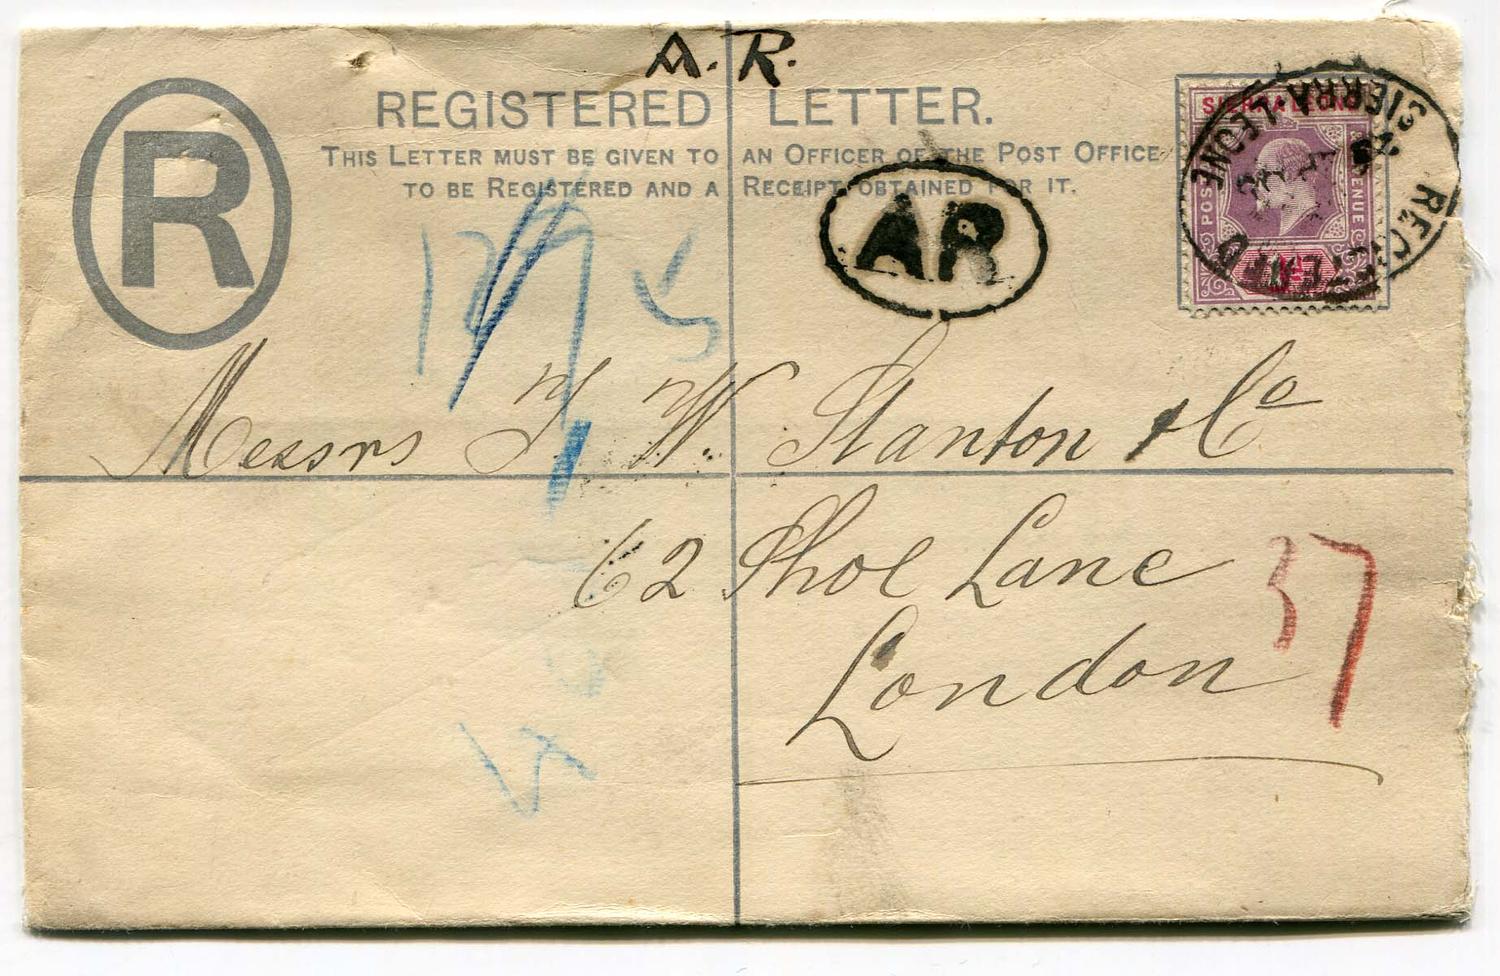 A. R.
R
REGISTERED LETTER.
THIS LETTER MUST BE GIVEN TO AN OFFICER OF THE POST OFFICE
TO BE REGISTERED AND A RECEIPT OBTAINED FOR IT.
AR
SIERRA LEONE
POSTAGE
REVENUE
REGISTERED
SIERRA-LEONE
Messrs W. Stanton & Co
62 Shoe Lane
London
37